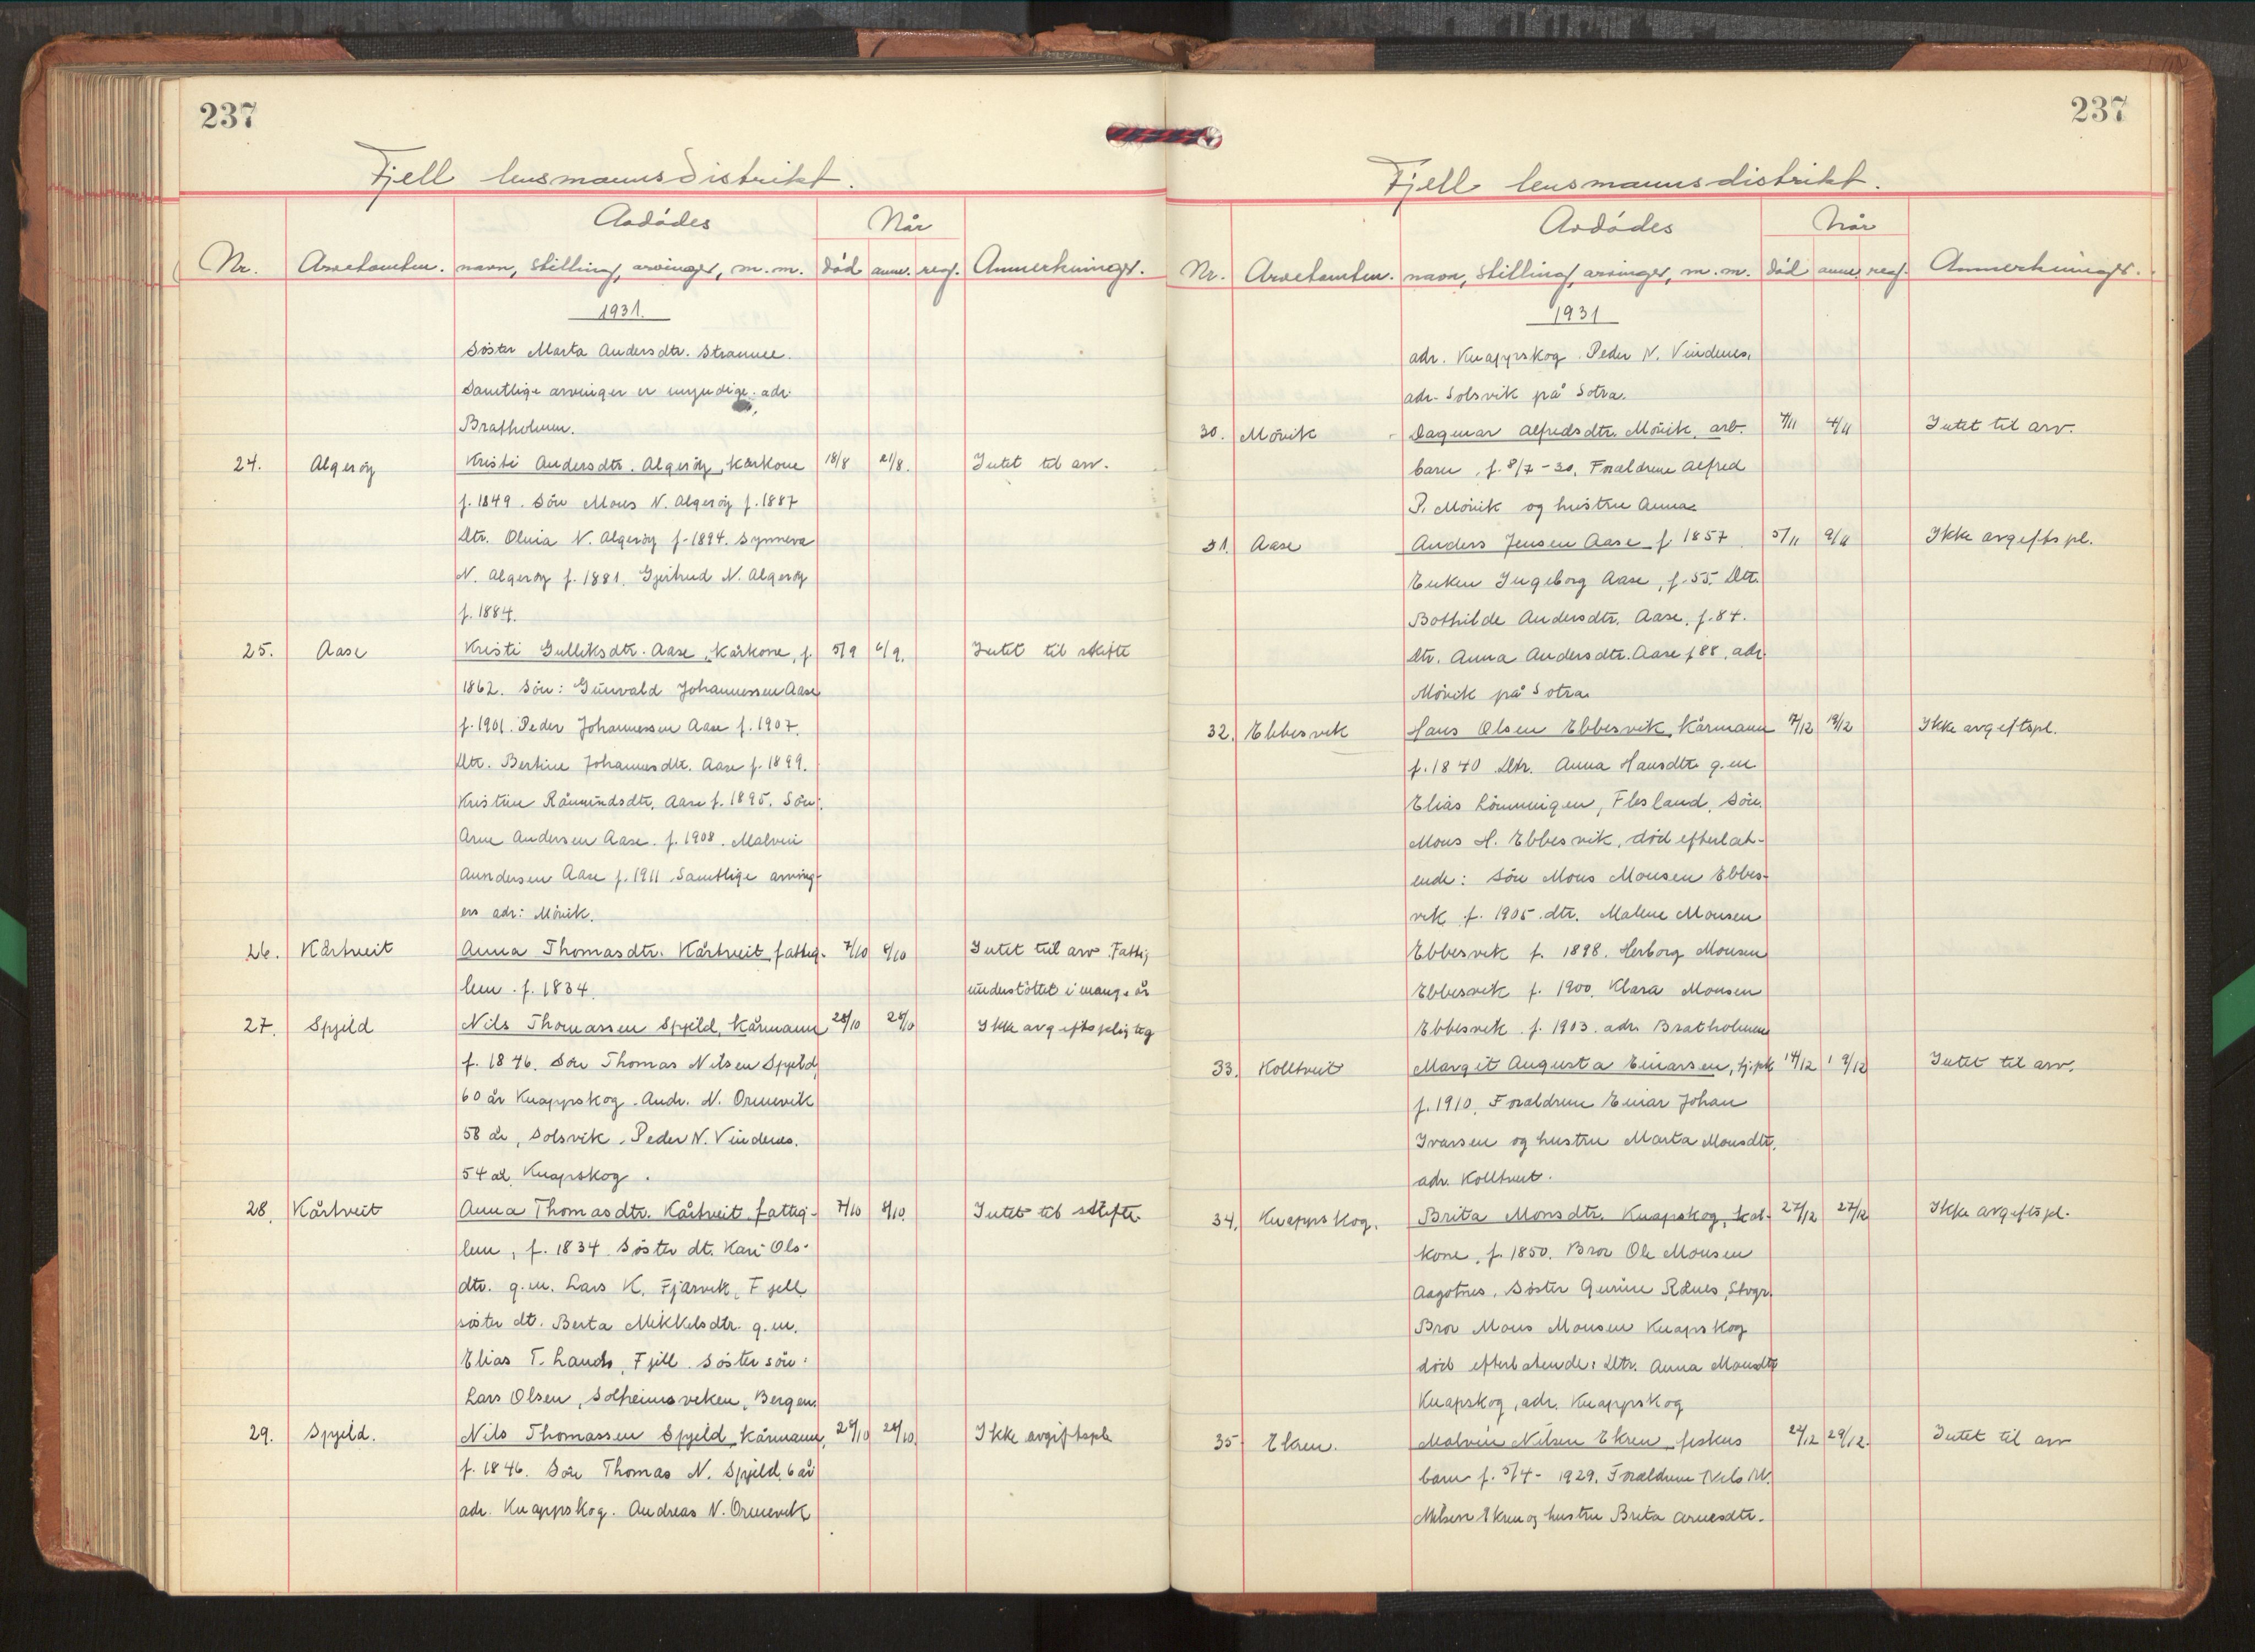 237
Fjell lensmannsdistrikt.
Avdödes
Når
Nr. Arvetomten. navn, stilling, arvinger, m.m. död anm. reg. Anmerkninger.
1931.
Söster Marta Andersdtr. Straume.
Samtlige arvinger er umyndige. adr.
Bratholmen.
24. Algeröy Kristi Andersdtr. Algeröy, kårkone 18/8 21/8. Intet til arv.
f. 1849. Sön Mons N. Algeröy f. 1887
dtr. Olivia N. Algeröy f. 1894. Synneva
N. Algeröy f. 1881. Gjertrud N. Algeröy
f. 1884.
25. Aase Kristi Gulliksdtr. Aase, kårkone, f. 5/9 6/9. Intet til skifte
1862. Sön: Gunvald Johannessen Aase
f. 1901. Peder Johannessen Aase f. 1907.
dtr. Bertine Johannesdtr. Aase f. 1899.
Kristine Råmundsdtr. Aase f. 1895. Sön:
Arne Andersen Aase. f. 1908. Malvin
Aunndersen Aase f. 1911. Samtlige arving-
ers adr: Mövik.
26. Kårtveit Anna Thomasdtr. Kårtveit, fattig- 7/10 8/10 Intet til arv. Fattig
lem. f. 1834. understöttet i mange år
27. Spjeld Nils Thomassen Spjeld, kårmann 28/10 28/10 Ikke avgiftspligtig
f. 1846. Sön Thomas Nilsen Spjeld,
60 år Knappskog. Andr. N. Ormevik
58 år, Solsvik. Peder N. Vindenes.
54 år. Knapskog.
28. Kårtveit Anna Thomasdtr. Kårtveit, fattig- 7/10 8/10. Intet til skifte
lem, f. 1834. Söster dt. Kari Ols-
dtr. g.m. Lars K. Fjærvik, Fjell
söster dt. Berta Mikkelsdtr. g.m.
Elias T. Lande, Fjell. Söster sön:
Lars Olsen, Solheimsviken, Bergen.
29. Spjeld. Nils Thomassen Spjeld, kårmann, 28/10 28/10. Ikke avgiftspl.
f. 1846. Sön Thomas N. Spjeld, 6 år
adr. Knappskog. Andreas N. Ormevik
237
Fjell lensmannsdistrikt.
Avdödes
Når
Nr. Arvetomten. navn, stilling, arvinger, m.m. död anm. reg. Anmerkninger.
1931
adr. Knappskog. Peder N. Vindenes,
adr. Solsvik på Sotra.
30. Mövik Dagmar Alfredsdtr. Mövik, arb. 4/11 Intet til arv.
barn, f. 8/7-30. Foreldrene Alfred
P. Mövik og hustru Anna
31. Aase Anders Jensen Aase f. 1857. 5/11 9/11 Ikke avgiftspl.
Enken Ingeborg Aase, f. 55. Dtr.
Bothilde Andersdtr. Aase, f. 84.
dtr. Anna Andersdtr. Aase f 88, adr.
Mövik på Sotra
32. Ebbesvik Hans Olsen Ebbesvik, kårmann 7/12 Ikke avgiftspl.
f. 1840. Dtr. Anna Hansdtr. g.m
Elias Lönningen, Flesland, Sön.
Mons H. Ebbesvik, död efterlat-
ende: Sön Mons Monsen Ebbes-
vik f. 1905. dtr. Malene Monsen
Ebbesvik f. 1898. Herborg Monsen
Ebbesvik f. 1900. Klara Monsen
Ebbesvik f. 1903. adr. Bratholmen
33. Kolltveit Margit Augusta Einarsen, tj.pk 14/12 19/12 Intet til arv.
f. 1910. Foreldrene Einar Johan
Ivarsen og hustru Marta Monsdtr.
adr. Kolltveit.
34. Knappskog. Brita Monsdtr. Knapskog, kår- 27/12 27/12 Ikke avgiftspl.
kone, f. 1850. Bror Ole Monsen
Aagotnes. Söster Gurine Stvgr.
Bror Mons Monsen Knapskog
död efterlatende: Dtr. Anna Monsdtr
Knapskog, adr. Knappskog
35 Ekren. Malvin Nilsen Ekren, fiskers 29/12. Intet til arv
barn f. 5/4-1929. Foreldrene Nils M.
Nilsen Ekren og hustru Brita Arnesdtr.